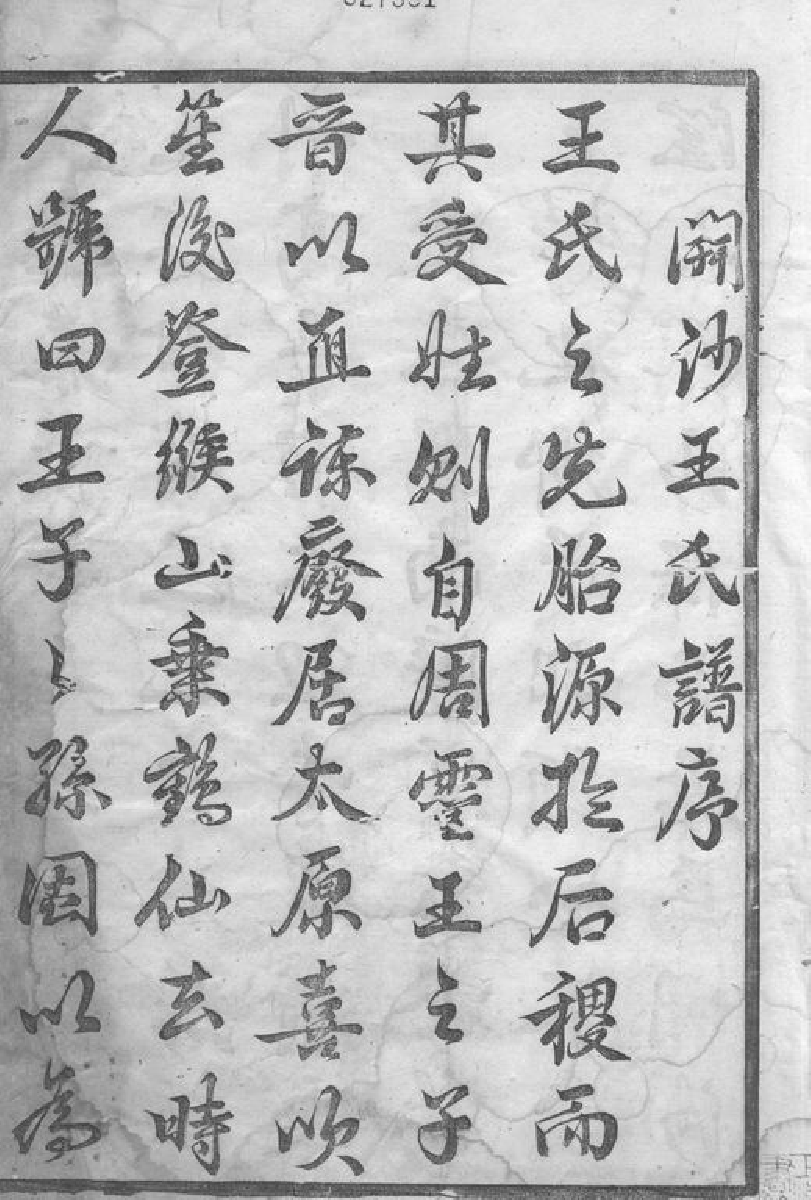 開沙王氏譜序
王氏之先胎源於后稷而
其受姓則自周靈王之子
晉以直諫廢居太原喜吹
笙後登緱山乗鶴仙去時
人號曰王子〻孫因以為